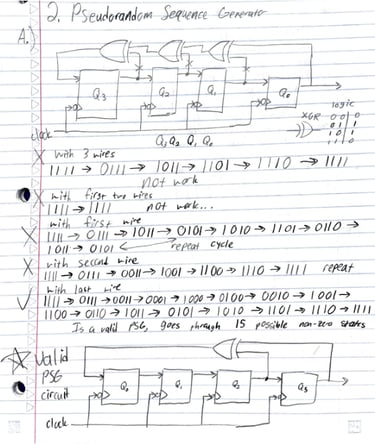 2. Pseudorandom Sequence Generator
A.)
Q3 Q2 Q1 Q0
logic
XOR 0 0 0
0 1 1
1 0 1
1 1 0
clock
Q3 Q2 Q1 Q0
X with 3 wires
1111 → 0111 → 1011 → 1101 → 1110 → 1111
not work
X with first two wires
1111 → 1111 not work...
with first wire
X 1111 → 0111 → 1011 → 0101 → 1010 → 1101 → 0110 →
1011 → 0101 ← repeat cycle
X with second wire
1111 → 0111 → 0011 → 1001 → 1100 → 1110 → 1111 repeat
✓ with last wire
1111 → 0111 → 0011 → 0001 → 1000 → 0100 → 0010 → 1001 →
1100 → 0110 → 1011 → 0101 → 1010 → 1101 → 1110 → 1111
Is a valid PSG, goes through 15 possible non-zero states
valid
PSG
circuit
Q0 Q1 Q2 Q3
clock